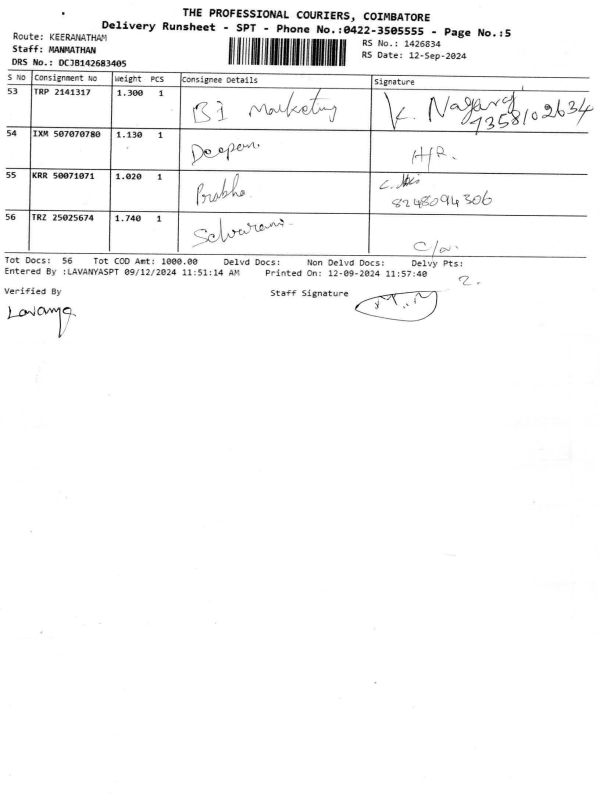 THE PROFESSIONAL COURIERS, COIMBATORE
Delivery Runsheet - SPT - Phone No.:0422-3505555 - Page No.:5
Route: KEERANATHAM
RS No.: 1426834
Staff: MANMATHAN
RS Date: 12-Sep-2024
DRS No.: DCJB142683405
S NO Consignment No Weight PCS Consignee Details Signature
53 TRP 2141317 1.300 1 BI Marketing K. Nagaraj
7358102634
54 IXM 507070780 1.130 1 Deepan. H/R.
55 KRR 50071071 1.020 1 Prabha
8248094306
56 TRZ 25025674 1.740 1 Selvarani. C/o.
Tot Docs: 56 Tot COD Amt: 1000.00 Delvd Docs: Non Delvd Docs: Delvy Pts:
Entered By :LAVANYASPT 09/12/2024 11:51:14 AM Printed On: 12-09-2024 11:57:40
2.
Verified By Staff Signature
Lavanya M..M